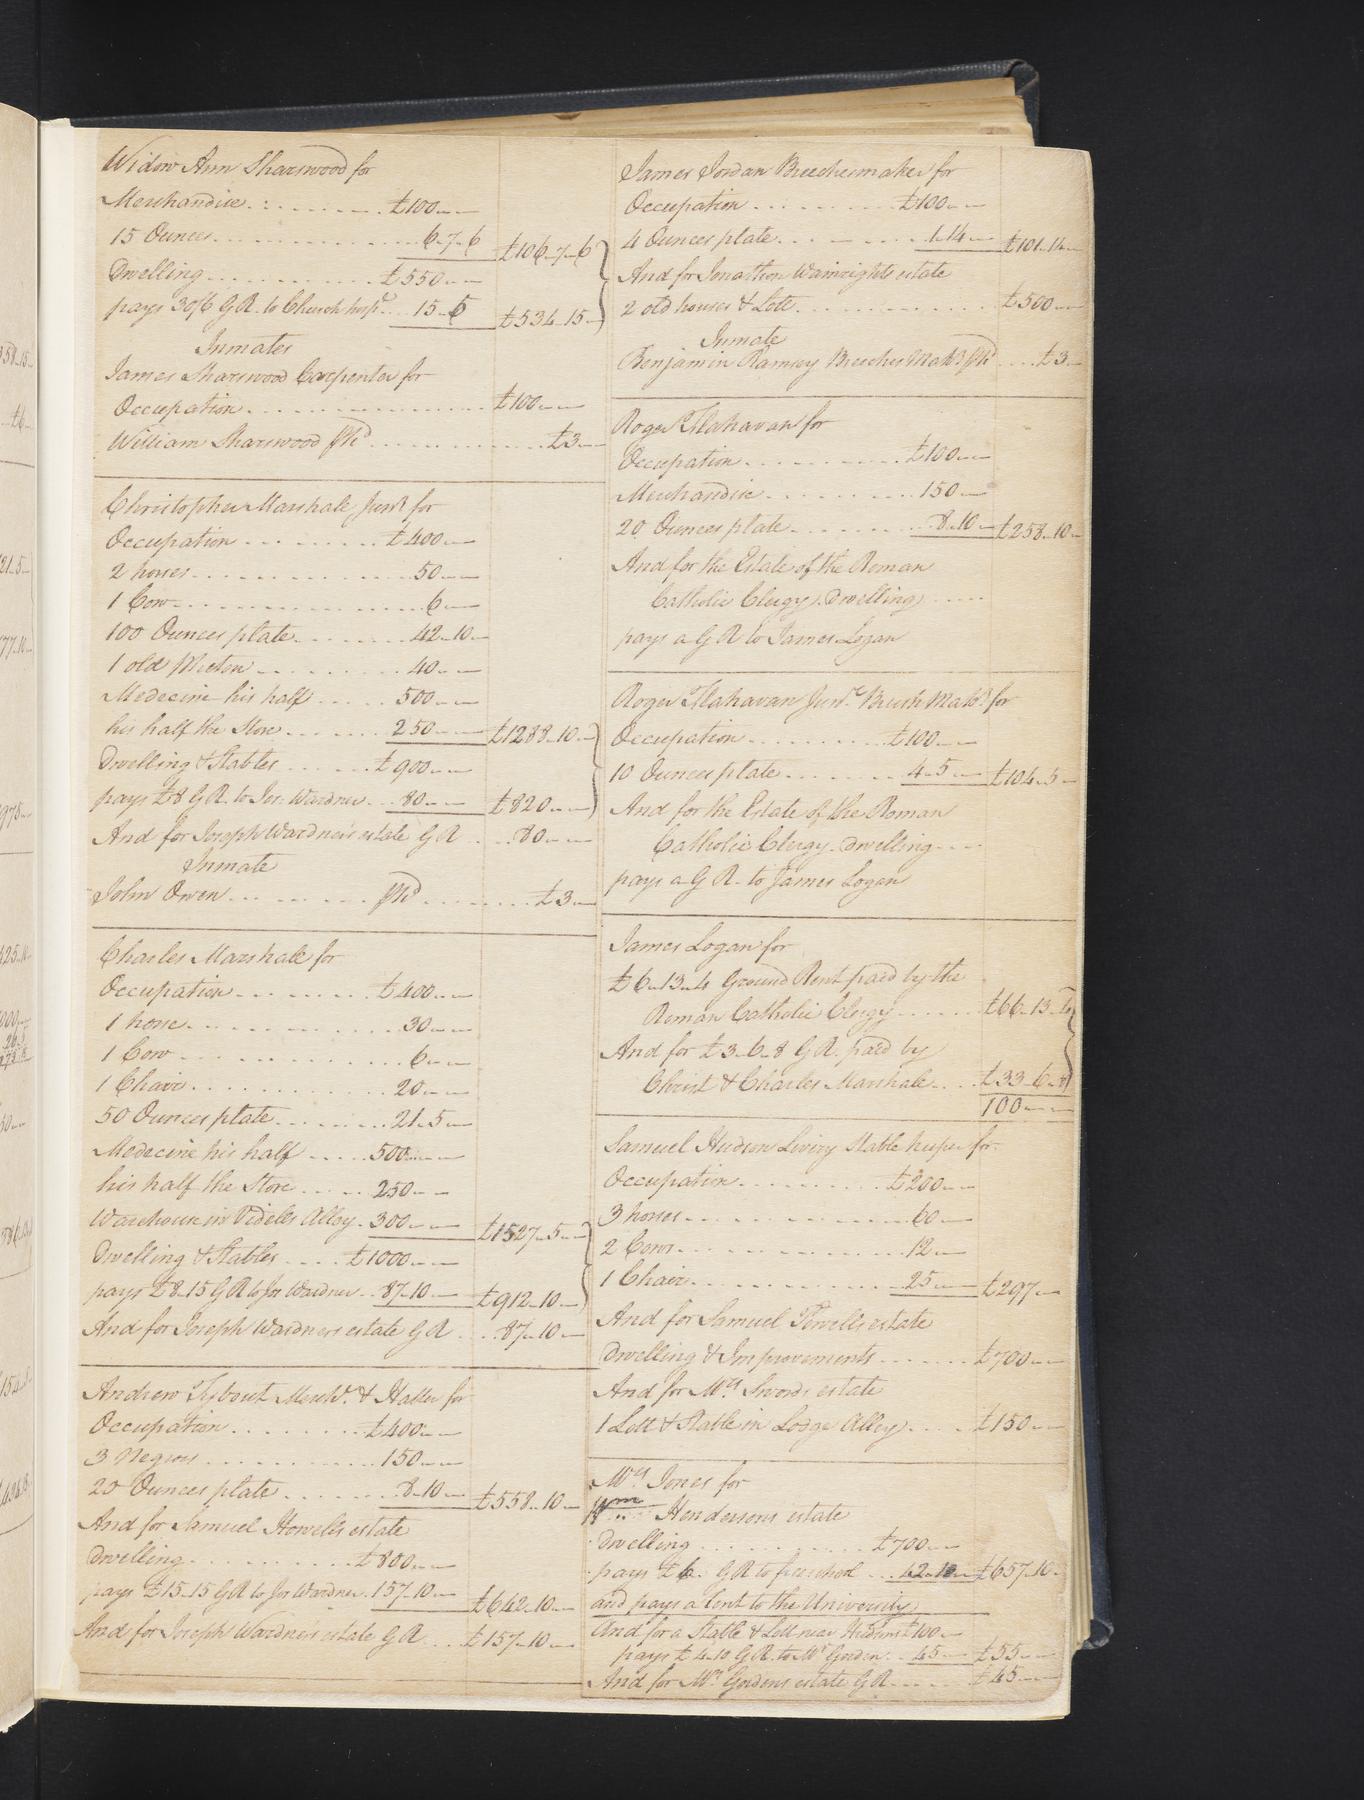 Widow Ann Sharswood for
Merchandise £100
15 Ounces 6-7-6 £106-7-6
Dwelling £550
pays 30/6 G R. to Church hosp.l 15-5 £534-15
Inmates
James Sharswood Carpenter for
Occupation £100
William Sharswood £3
Christopher Marshall Junr for
Occupation £400
2 horses 50
1 Cow 6
100 Ounces plate 42-10
1 old 40
Medecine his half 500
his half the Store 250 £1288-10
Dwelling & Stables £900
pays £8 G R. to Jos: Wardner 80 £820
And for Joseph Wardners estate G R 80
Inmate
John Owen £3
Charles Marshall for
Occupation £400
1 horse 30
1 Cow 6
1 Chair 20
50 Ounces plate 21-5
Medecine his half 500
his half the Store 250
Warehouse in Vidells Alley 300 £1527-5
Dwelling & Stables £1000
pays £8-15 G R to Jos Wardner 87-10 £912-10
And for Joseph Wardners estate G R 87-10
Andrew Tybout Mercht. & Hatter for
Occupation £400
3 Negroes 150
20 Ounces plate 8-10 £558-10
And for Samuel Howells estate
Dwelling £800
pays £15-15 G R to Jos Wardner 157-10 £642-10
And for Joseph Wardners estate G R £157-10
James Jordan Breechesmaker for
Occupation £100
4 Ounces plate 1-14 £101-14
And for Jonathon Wainrights estate
2 old houses & Lott £500
Inmate
Benjamin Ramsey Breeches Makr £3
Roger Flahavan for
Occupation £100
Merchandise 150
20 Ounces plate 8-10 £258-10
And for the Estate of the Roman
Catholic Clergy, Dwelling
pays a G R to James Logan
Roger Flahavan Junr. Brush Makr. for
Occupation £100
10 Ounces plate 4-5 £104-5
And for the Estate of the Roman
Catholic Clergy. Dwelling
pays a G R. to James Logan
James Logan for
£6-13-4 Ground Rent paid by the
Roman Catholic Clergy £66-13-4
And for £3-6-8 G R. paid by
Christ & Charles Marshall £33-6-8
100
Samuel Hudson Livery Stable keeper for
Occupation £200
3 horses 60
2 Cows 12
1 Chair 25 £297
And for Samuel Powells estate
Dwelling & Improvements £700
And for Mrs Swords estate
1 Lott & Stable in Lodge Alley £150
Mrs Jones for
Wm Hendersons estate
Dwelling £700
pays £6 G R to freeschool 42-10 £657-10
and pays a Rent to the University
And for a Stable & Lott near Hudsons £100
pays £4-10 G R. to Mr Gorden 45 £55
And for Mr Gordens estate G R £45